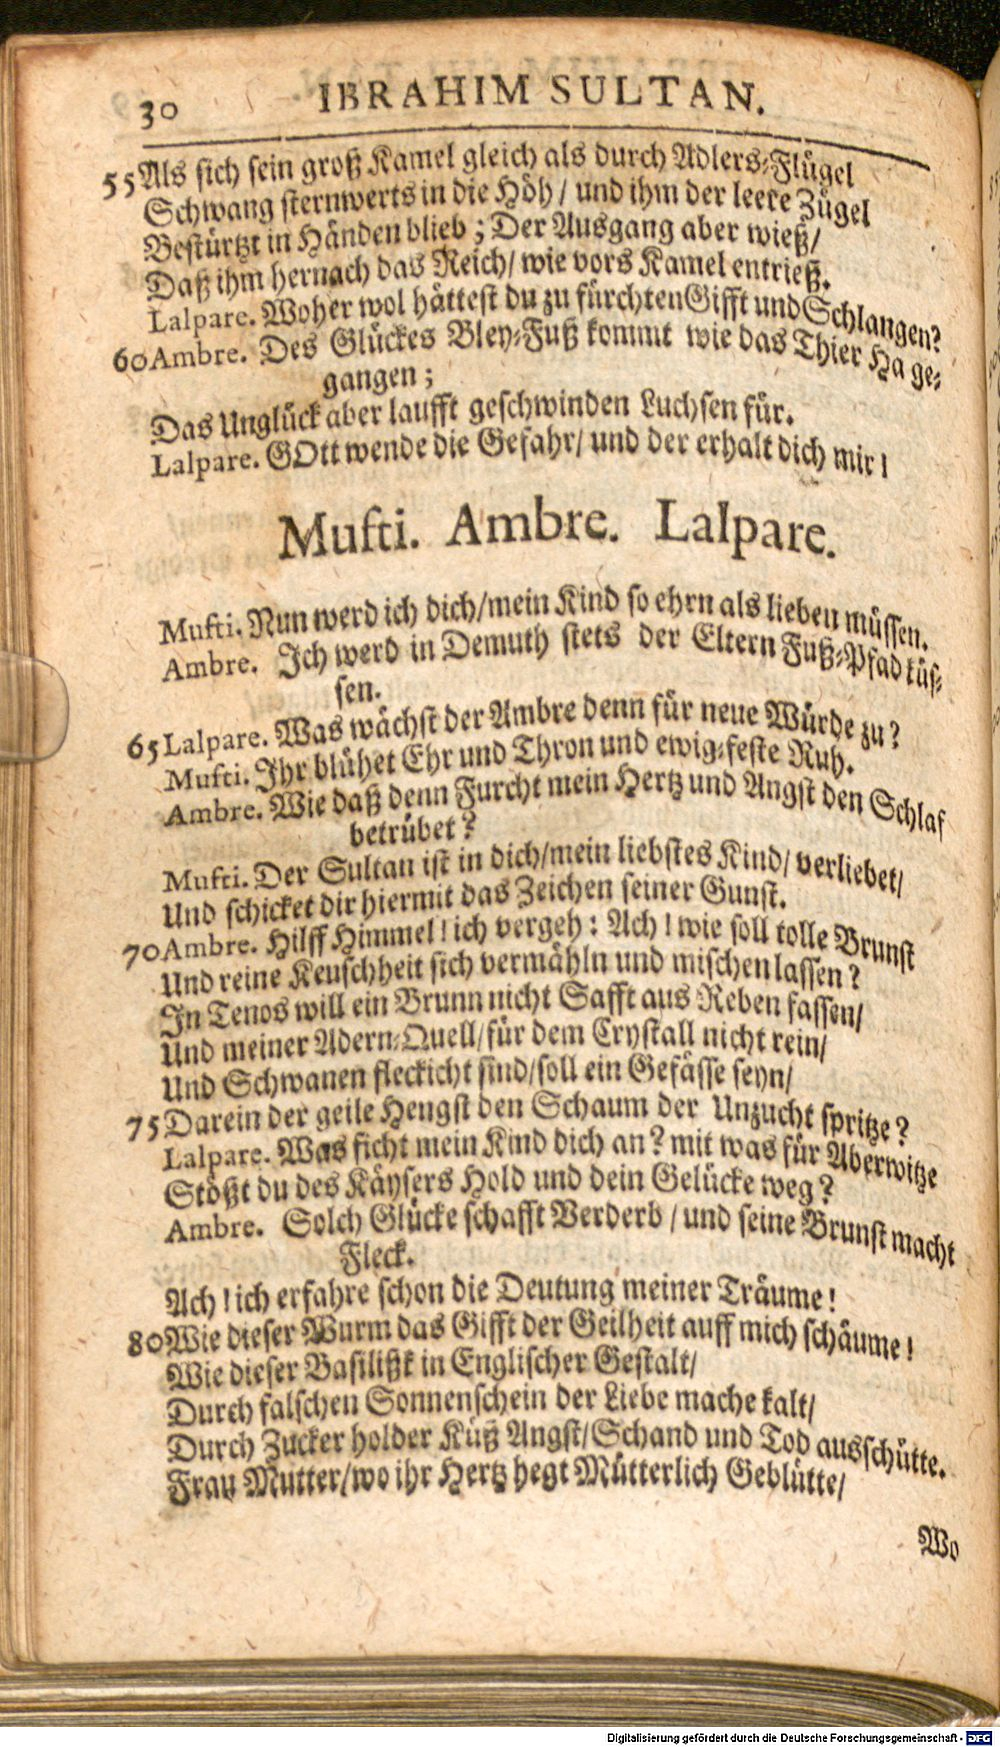 30 IBRAHIM SULTAN.
55 Als sich sein groß Kamel gleich als durch Adlers-Flügel
Schwang sternwerts in die Höh/ und ihm der leere Zügel
Bestürtzt in Händen blieb; Der Ausgang aber wieß/
Daß ihm hernach das Reich/ wie vors Kamel entrieß.
Lalpare. Woher wol hättest du zu fürchten Gifft und Schlangen?
60 Ambre. Des Glückes Bley-Fuß kommt wie das Thier Ha ge-
gangen;
Das Unglück aber laufft geschwinden Luchsen für.
Lalpare. GOtt wende die Gefahr/ und der erhalt dich mir!
Mufti. Ambre. Lalpare.
Mufti. Nun werd ich dich/ mein Kind so ehrn als lieben müssen.
Ambre. Ich werd in Demuth stets der Eltern Fuß-Pfad küs-
sen.
65 Lalpare. Was wächst der Ambre denn für neue Würde zu?
Mufti. Ihr blühet Ehr und Thron und ewig-feste Ruh.
Ambre. Wie daß denn Furcht mein Hertz und Angst den Schlaf
betrübet?
Mufti. Der Sultan ist in dich/ mein liebstes Kind/ verliebet/
Und schicket dir hiermit das Zeichen seiner Gunst.
70 Ambre. Hilff Himmel! ich vergeh: Ach! wie soll tolle Brunst
Und reine Keuschheit sich vermähln und mischen lassen?
In Tenos will ein Brunn nicht Safft aus Reben fassen/
Und meiner Adern-Quell/ für dem Crystall nicht rein/
Und Schwanen fleckicht sind/ soll ein Gefässe seyn/
75 Darein der geile Hengst den Schaum der Unzucht spritze?
Lalpare. Was ficht mein Kind dich an? mit was für Aberwitze
Stößt du des Käysers Hold und dein Gelücke weg?
Ambre. Solch Glücke schafft Verderb/ und seine Brunst macht
Fleck.
Ach! ich erfahre schon die Deutung meiner Träume!
80 Wie dieser Wurm das Gifft der Geilheit auff mich schäume!
Wie dieser Basilißk in Englischer Gestalt/
Durch falschen Sonnenschein der Liebe mache kalt/
Durch Zucker holder Küß Angst/ Schand und Tod ausschütte.
Frau Mutter/ wo ihr Hertz hegt Mütterlich Geblütte/
Wo
Digitalisierung gefördert durch die Deutsche Forschungsgemeinschaft - DFG